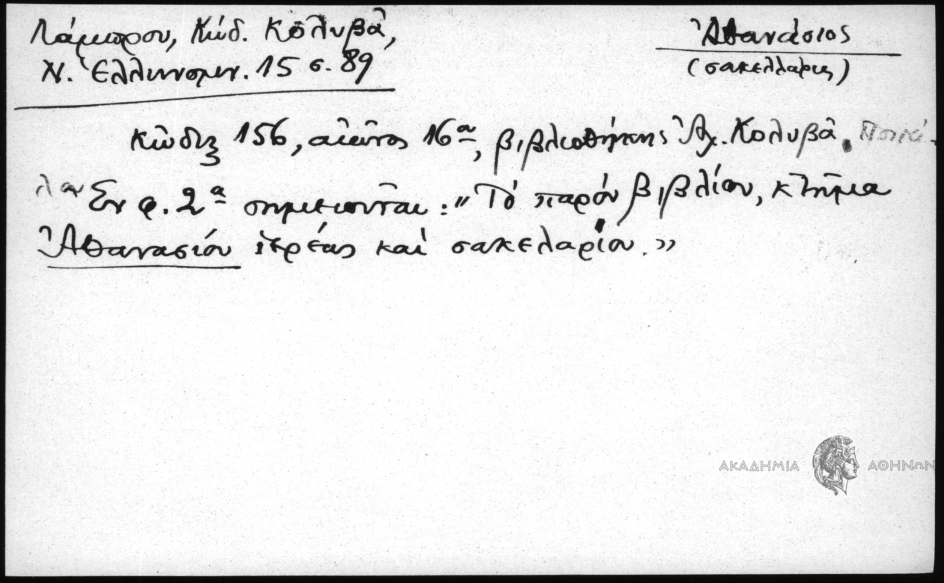 Λάμπρου, Κώδ. Κολυβᾶ,
Ν. Ἑλληνομν. 15 σ. 89
Ἀθανάσιος
(σακελλάριος)
Κῶδιξ 156, αἰῶνος 16ου, βιβλιοθήκης Ἀλ. Κολυβᾶ. Ποικί-
λα Ἐν φ. 2α σημειοῦται: "Τὸ παρὸν βιβλίον, κτῆμα
Ἀθανασίου ἱερέως καὶ σακελαρίου."
ΑΚΑΔΗΜΙΑ ΑΘΗΝΩΝ